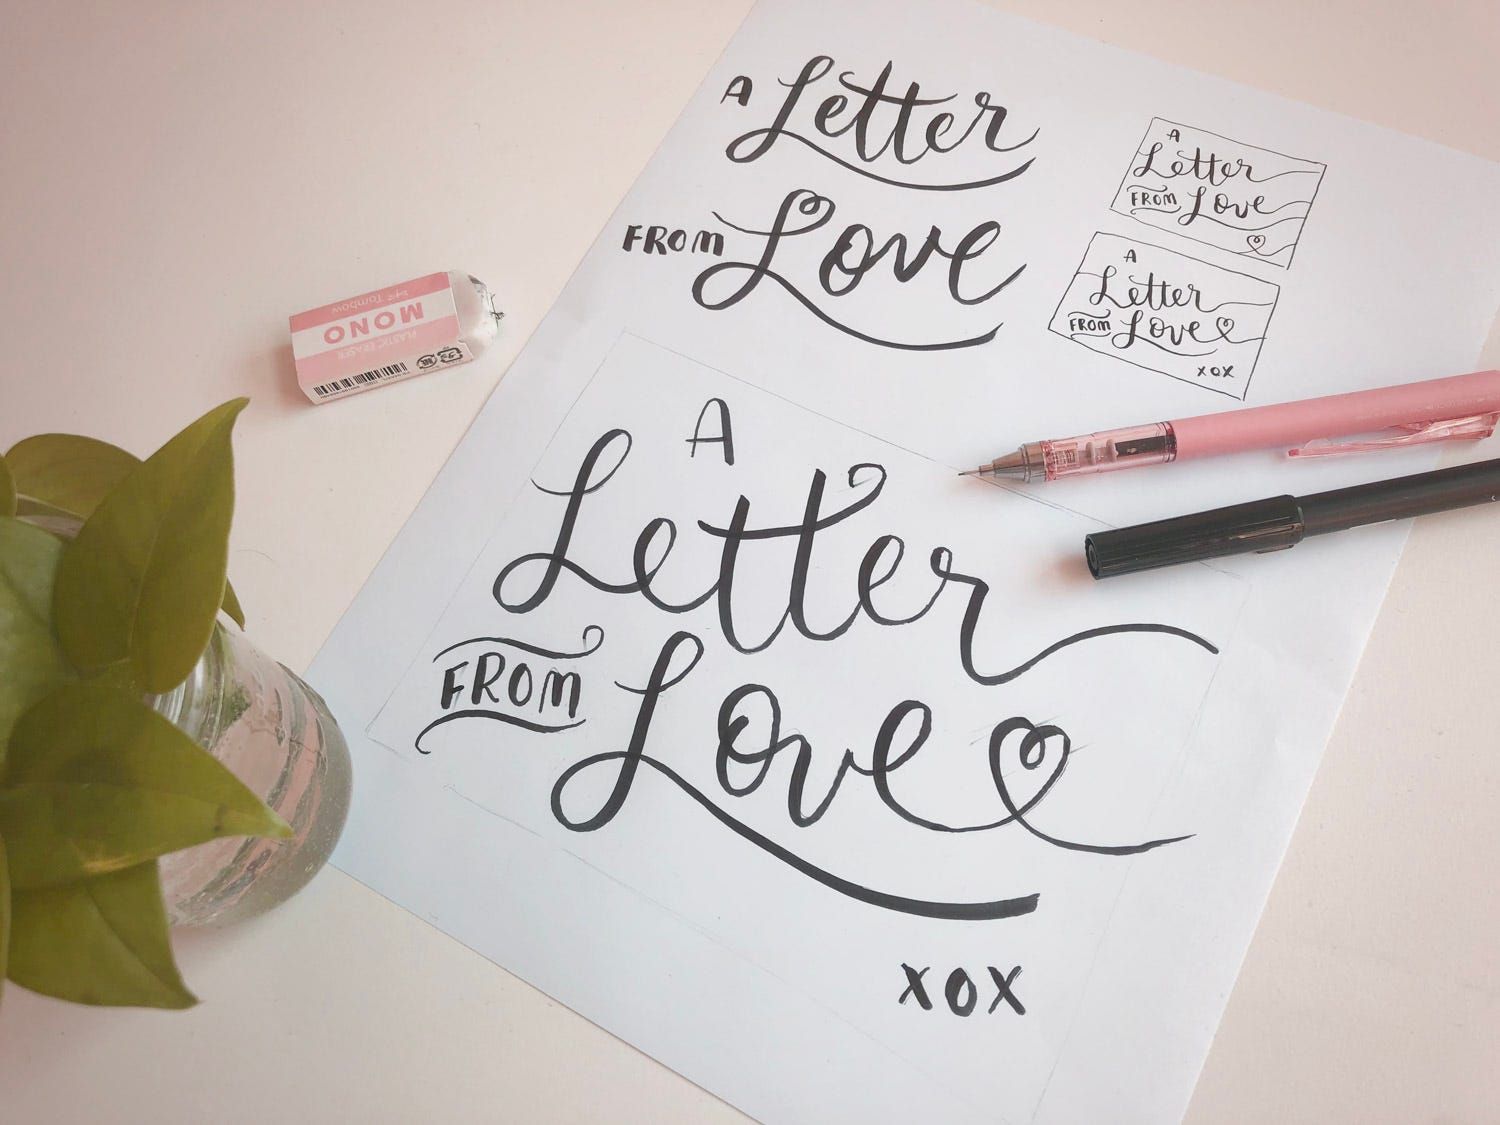 A Letter
FROM Love
A
Letter
FROM Love
A
Letter
FROM Love
xox
A
Letter
FROM Love
XOX
Tombow
MONO
PLASTIC ERASER